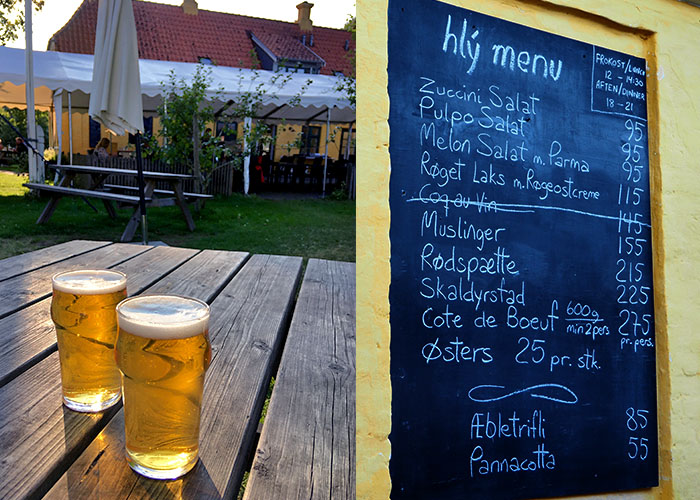 hlý menu
FROKOST/LUNCH
12 - 14:30
AFTEN/DINNER
18 - 21
Zuccini Salat 95
Pulpo Salat 95
Melon Salat m. Parma 95
Røget Laks m. Røgeostcreme 115
Coq au Vin 145
Muslinger 155
Rødspætte 215
Skaldyrsfad 225
Cote de Boeuf 600g min 2 pers 275 pr. pers.
Østers 25 pr. stk.
Æbletrifli 85
Pannacotta 55